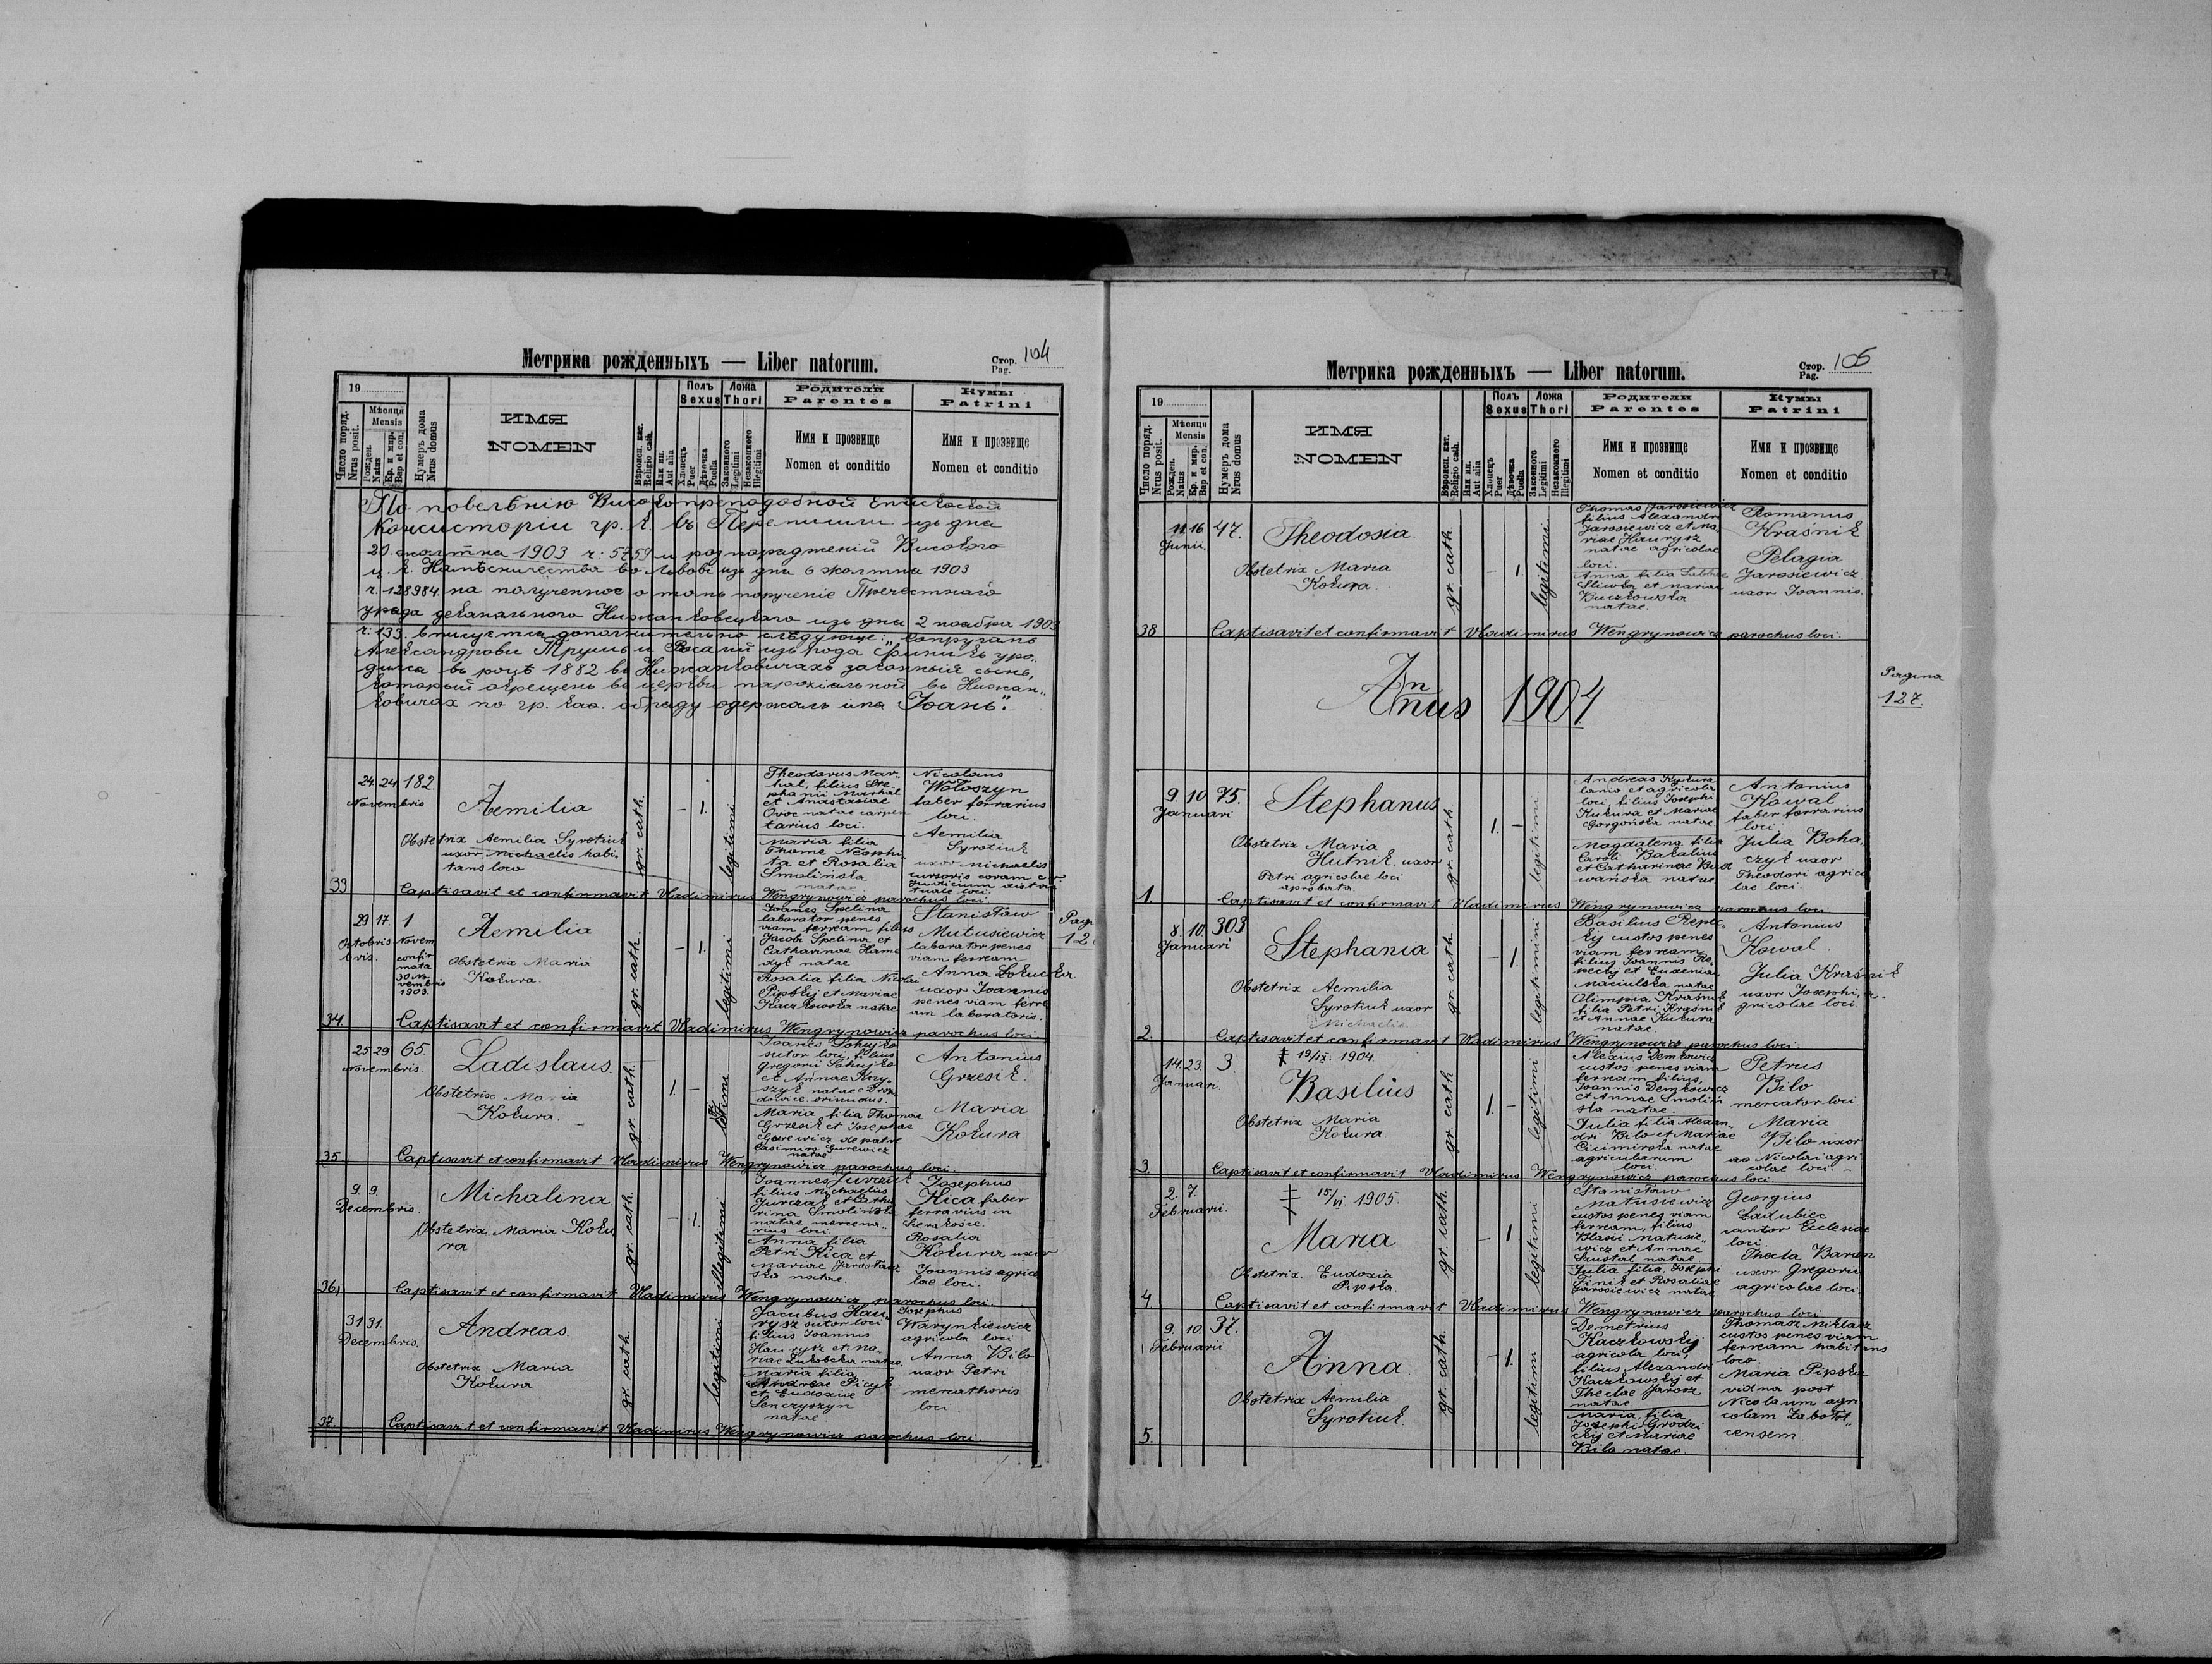 Метрика рожденныхъ — Liber natorum.
Стор. Pag. 104
19
Число поряд. Nrus posit.
Мѣсяця Mensis
Рожден. Natus
Кр. и мир. Bap et con.
Нумеръ дома Nrus domus
ИМЯ
NOMEN
Вѣроисп. кат. Religio cath.
Или ин. Aut alia
Полъ Sexus
Хлопець Puer
Дѣвочка Puella
Ложа Thori
Законного Legitimi
Незаконного Illegitimi
Родители
Parentes
Имя и прозвище
Nomen et conditio
Кумы
Patrini
Имя и прозвище
Nomen et conditio
По повелѣнію Високопреподобной Епископской
Консисторіи гр. к. въ Перемишли изъ дня
20 жолтня 1903 ч: 5759 и розпоряженій Високого
ц. к. Намѣсничества во Львовѣ изъ дня 6 жолтня 1903
ч. 128984 на полученное о томъ порученіе Пречестнаго
уряда деканального Нижанковецкого изъ дня 2 ноября 1903
ч: 133. вписуєтся дополнительно слѣдующе: „Супругамъ
Александрови Трушъ и Росалии изъ рода Финикъ уро-
дился въ роцѣ 1882 въ Нижанковичахъ законный сынъ,
который окрещенъ въ церкви парохіяльной въ Нижан-
ковичах по гр. као. обряду одержалъ имя Іоанъ".
24. 24 182.
Novembris
Aemilia
Obstetrix Aemilia Syrotiuk
uxor Michaelis habi
tans loco
gr. cath.
– 1.
legitimi
Theodorus Mar-
hal, filius Ste-
phanii Marhal
et Anastasiae
Ovoc natae carpen
tarius loci.
Maria filia
Thome Neophi
ta et Rosalia
Smolińska
natae
Nicolaus
Wołoszyn
faber ferrarius
loci.
Aemilia
Syrotiuk
uxor Michaelis
cursoris coram
Judicium
loci
33 Captisavit et confirmavit Vladimirus Wengrynowicz parochus loci.
29 17. 1
Octobris Novem
bris. confir
mata
30 No
vembris
1903.
Aemilia
Obstetrix Maria
Kokura.
gr. cath.
– 1.
legitimi
Joanes Spelina
laborator penes
viam ferream filius
Jacobi Spelina et
Catharinae Hame
dyk natae
Rosalia filia Nicolai
Pipskij et Mariae
Kaczkowska natae
Stanisław
Mutusiewicz
laborator penes
viam ferream
Anna
uxor Joannis
penes viam ferre
am laboratoris.
Pagi
12
34. Captisavit et confirmavit Vladimirus Wengrynowicz parochus loci.
25 29 65.
Novembris.
Ladislaus.
Obstetrix Maria
Kokura.
gr. cath.
1. –
legitimi
Joanes Sohujko
sutor loci, filius
gregorii Sohujko
et Annae Kry-
szyk natae
oriundus.
Maria filia Thomae
Grzesik et Josephae
Gurewicz de patre
Casimiro Gurewicz
natae
Antonius
Grzesik.
Maria
Kokura
35. Captisavit et confirmavit Vladimirus Wengrynowicz parochus loci.
9. 9.
Decembris.
Michalina
Obstetrix Maria Koku
ra
gr. cath.
– 1.
illegitimi
Joannes Jurczak
filius Michaelis
Jurczak et Catha
rina Smolińska
natae mercena-
rius loci
Anna filia
Petri Kica et
Mariae Jarosław
ska natae.
Josephus
Kica faber
ferrarius in
Sierakośce.
Rosalia
Kokura uxor
Joannis agrico
lae loci.
36. Captisavit et confirmavit Vladimirus Wengrynowicz parochus loci.
31 31.
Decembris.
Andreas.
Obstetrix Maria
Kokura
gr. cath.
legitimi
Jacubus Hau
rysz sutor loci
filius Joannis
Haurysz et Ma
riae natae.
Maria filia
Andreae Picyk
et Eudoxiae
Senczyszyn
natae
Josephus
Warynkiewicz
agricola loci
Anna Bilo
uxor Petri
mercathoris
loci
37. Captisavit et confirmavit Vladimirus Wengrynowicz parochus loci.
Метрика рожденныхъ — Liber natorum.
Стор. Pag. 105
19
Число поряд. Nrus posit.
Мѣсяця Mensis
Рожден. Natus
Кр. и мир. Bap et con.
Нумеръ дома Nrus domus
ИМЯ
NOMEN
Вѣроисп. кат. Religio cath.
Или ин. Aut alia
Полъ Sexus
Хлопець Puer
Дѣвочка Puella
Ложа Thori
Законного Legitimi
Незаконного Illegitimi
Родители
Parentes
Имя и прозвище
Nomen et conditio
Кумы
Patrini
Имя и прозвище
Nomen et conditio
11 16 47.
Junii.
Theodosia.
Obstetrix Maria
Kokura.
gr. cath
– 1.
legitimi
Thomas Jarosiewicz
filius Alexandri
Jarosiewicz et Ma
riae Haurysz
natae agricolae
loci.
Anna filia Sabbae
Sliwka et Mariae
Buczkowska
natae.
Romanus
Kraśnik
Pelagia
Jarosiewicz
uxor Joannis.
38 Captisavit et confirmavit Vladimirus Wengrynowicz parochus loci.
Annus 1904
Pagina
127.
9. 10 75.
Januari
Stephanus
Obstetrix Maria
Hutnik. uxor
Petri agricolae loci
aprobata.
gr. cath
1. –
legitimi
Andreas Kukura
lanio et agricola
loci, filius Josephi
Kukura et Mariae
Gorgońska natae
Magdalena filia
Caroli Bakalius
et Catharinae
natae
Antonius
Kowal
faber ferrarius
loci
Julia Boha
czyk uxor
Theodori agrico
lae loci.
1. Captisavit et confirmavit Vladimirus Wengrynowicz parochus loci
8. 10. 303
Januari
Stephania
Obstetrix Aemilia
Syrotiuk uxor
Michaelis.
gr. cath
– 1.
legitimini
Basilius Repec-
kij custos penes
viam ferream
filius Joannis Re
peckij et Euxenia
Maciulska natae
Olimpia Kraśnik
filia Petri Kraśnik
et Annae Kukura
natae.
Antonius
Kowal.
Julia Kraśnik
uxor Josephi, a-
gricolae loci.
2. Captisavit et confirmavit Vladimirus Wengrynowicz parochus loci.
14. 23. 3.
Januari.
19/IX. 1904.
Basilius
Obstetrix Maria
Kokura
gr. cath
1. –
legitimi
Alexius Demkowicz
custos penes viam
ferream filius,
Joannis Demkowicz
et Annae Smoliń
ska natae.
Julia filia Alexan-
dri Bilo et Mariae
Cicimirska natae
agricularum
loci.
Petrus
Bilo
mercator loci
Maria
Bilo uxor
Nicolai agri
colae loci. –
3. Captisavit et confirmavit Vladimirus Wengrynowicz parochus loci.
2. 7.
Februarii.
15/VI. 1905.
Maria
Obstetrix. Eudoxia
Pipska.
gr. cath.
– 1
legitimi
Stanisław
Matusiewicz
custos penes viam
ferream, filius
Blasii Matusie-
wicz et Annae
Szustal natae.
Julia filia, Josephi
Finik et Rosaliae
Jarosiewicz natae.
Georgius
Ladubiec
cantor Ecclesiae
loci.
Thecla Baran
uxor Gregorii
agricolae loci.
4. Captisavit et confirmavit Vladimirus Wengrynowicz parochus loci
9. 10. 37.
Februarii
Anna.
Obstetrix Aemilia
Syrotiuk.
gr. cath.
– 1.
legitimi
Demetrius
Kaczkowskij
agricola loci,
filius Alexandri
Kaczkowskij et
Theclae Jarosz
natae.
Maria, filia
Josephi Grodzi
ckij et Mariae
Bilo natae.
Thomasz Miklasz
custos penes viam
ferream habitans
loco.
Maria Pipska
vidna post
Nicolaum agri
colam Zabołot-
censem.
5.